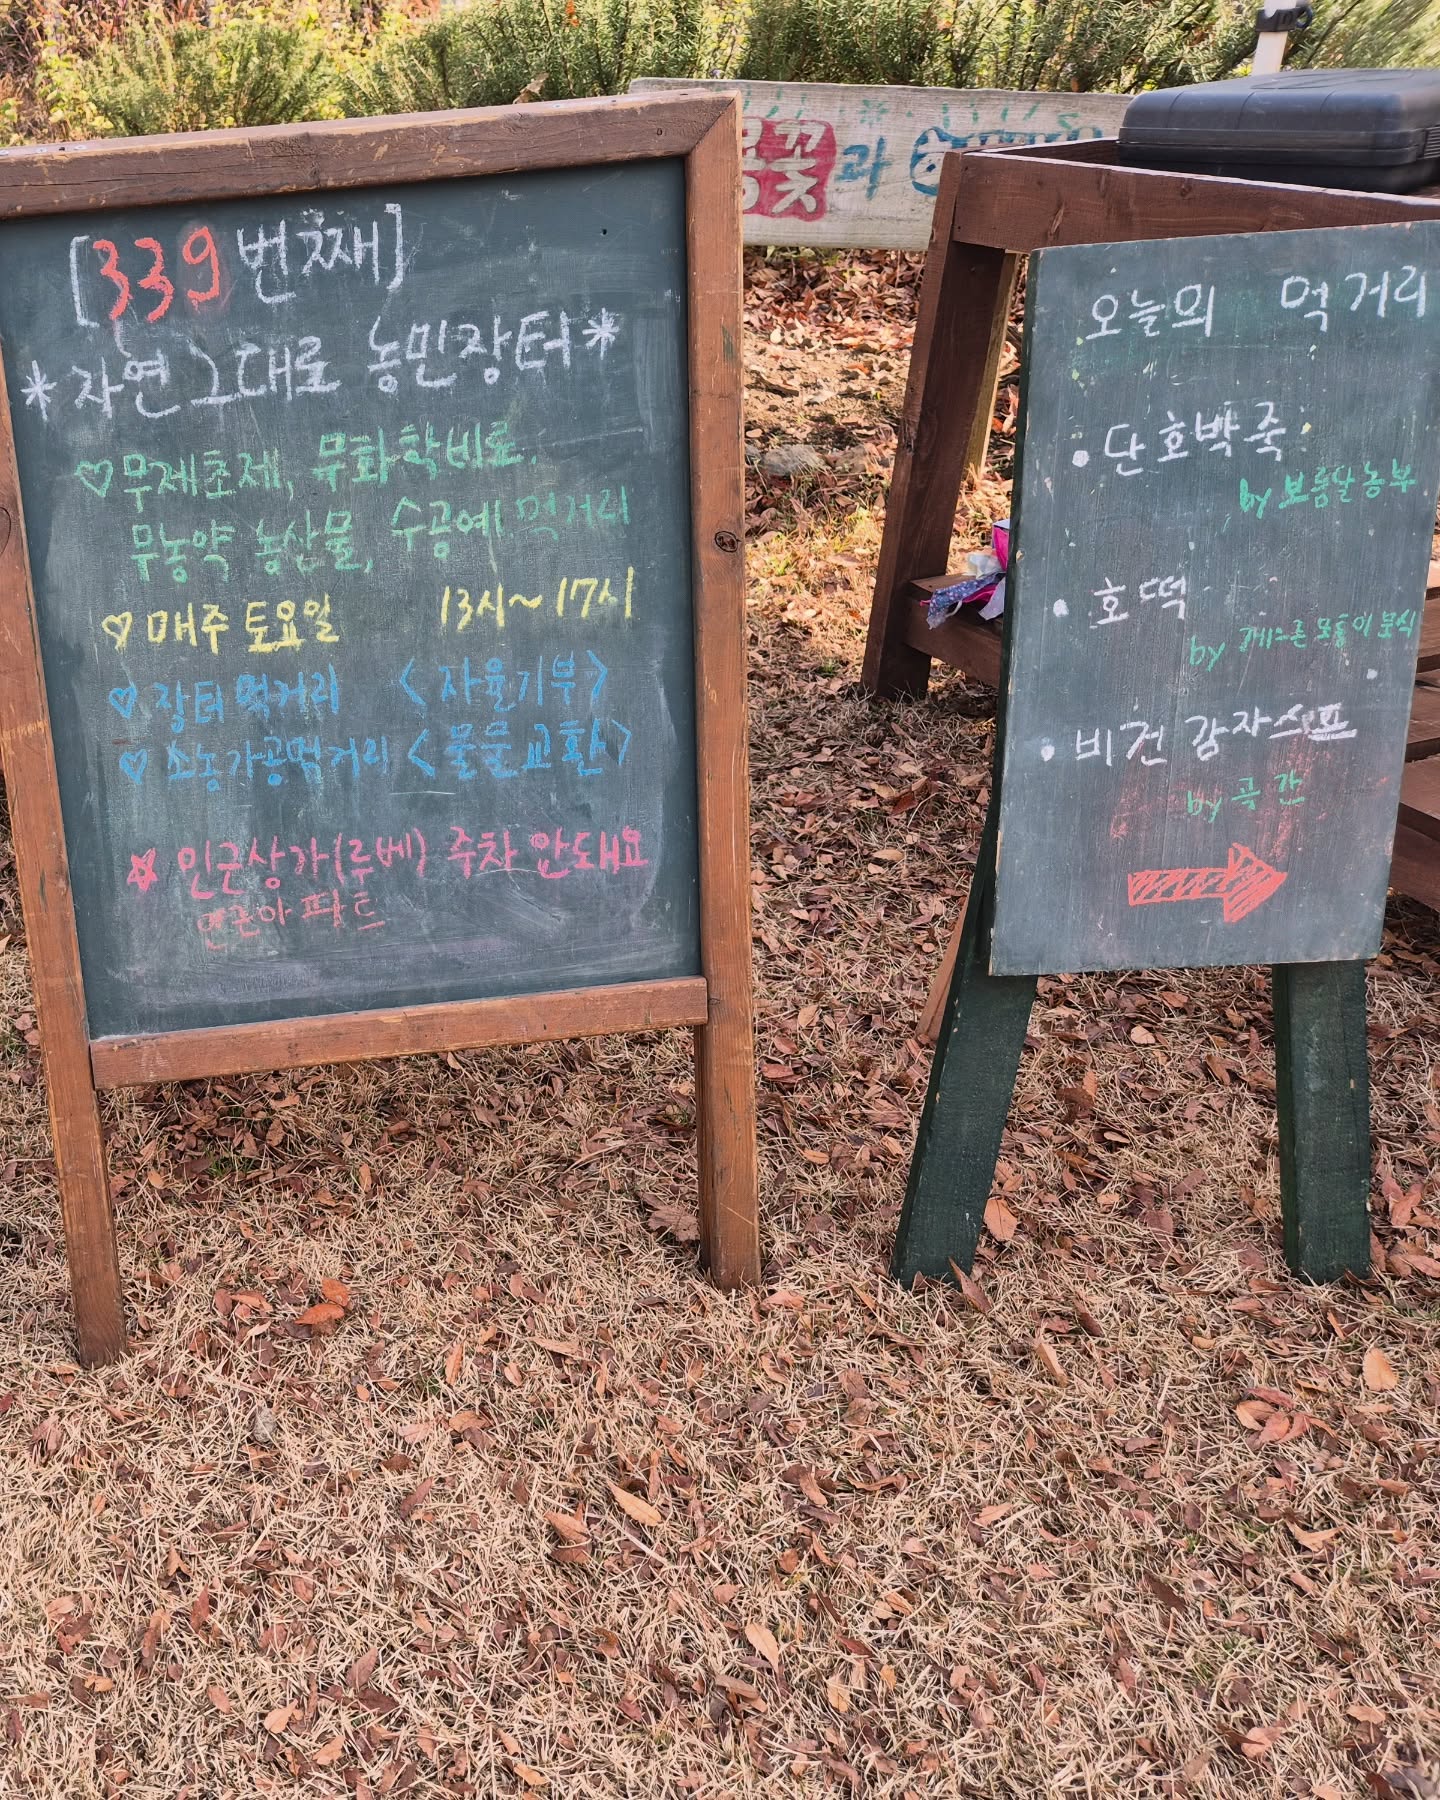 [339번째]
*자연그대로 농민장터*
♡무제초제, 무화학비료,
무농약 농산물, 수공예 먹거리
♡매주 토요일 13시~17시
♡장터먹거리 <자율기부>
♡소농가공먹거리 <물물교환>
☆인근상가(루베) 주차 안돼요
인근아파트
꽃과
오늘의 먹거리
• 단호박죽
by 보름달농부
• 호떡
by 모퉁이분식
• 비건 감자스프
by 곡간